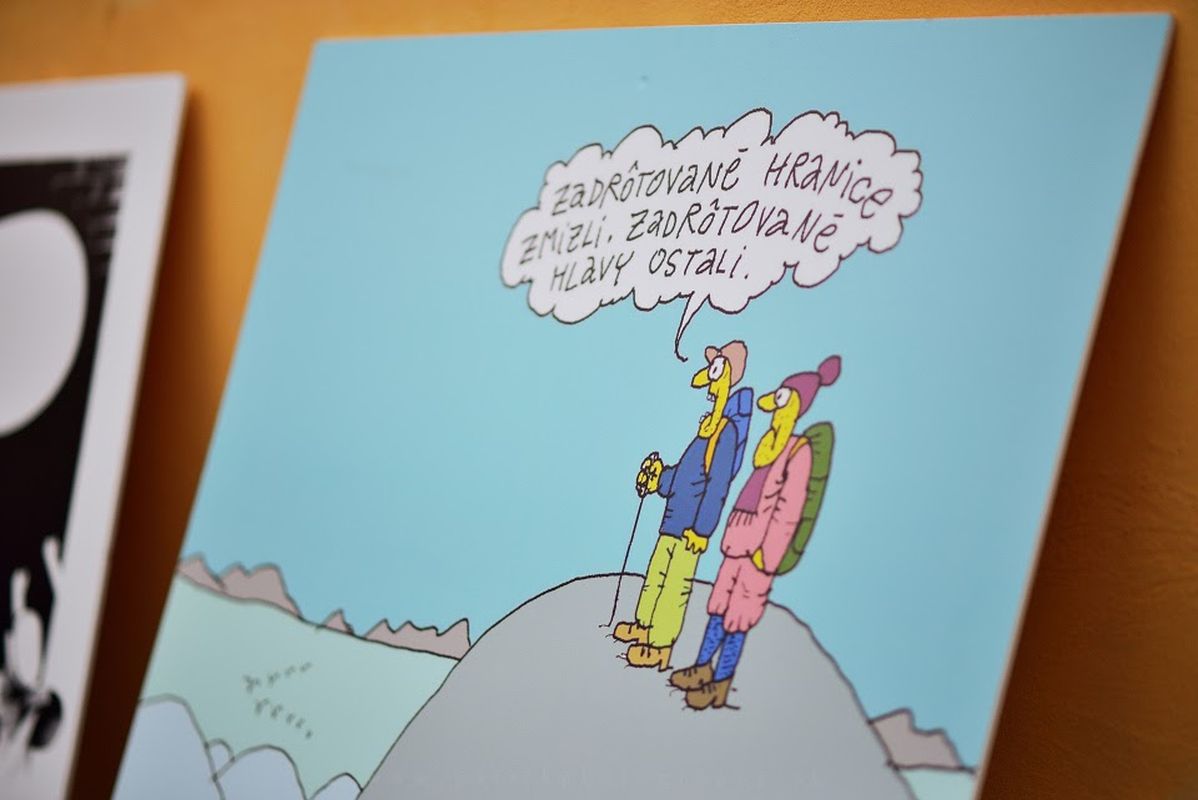 ZADRÔTOVANÉ HRANICE
ZMIZLI. ZADRÔTOVANÉ
HLAVY OSTALI.